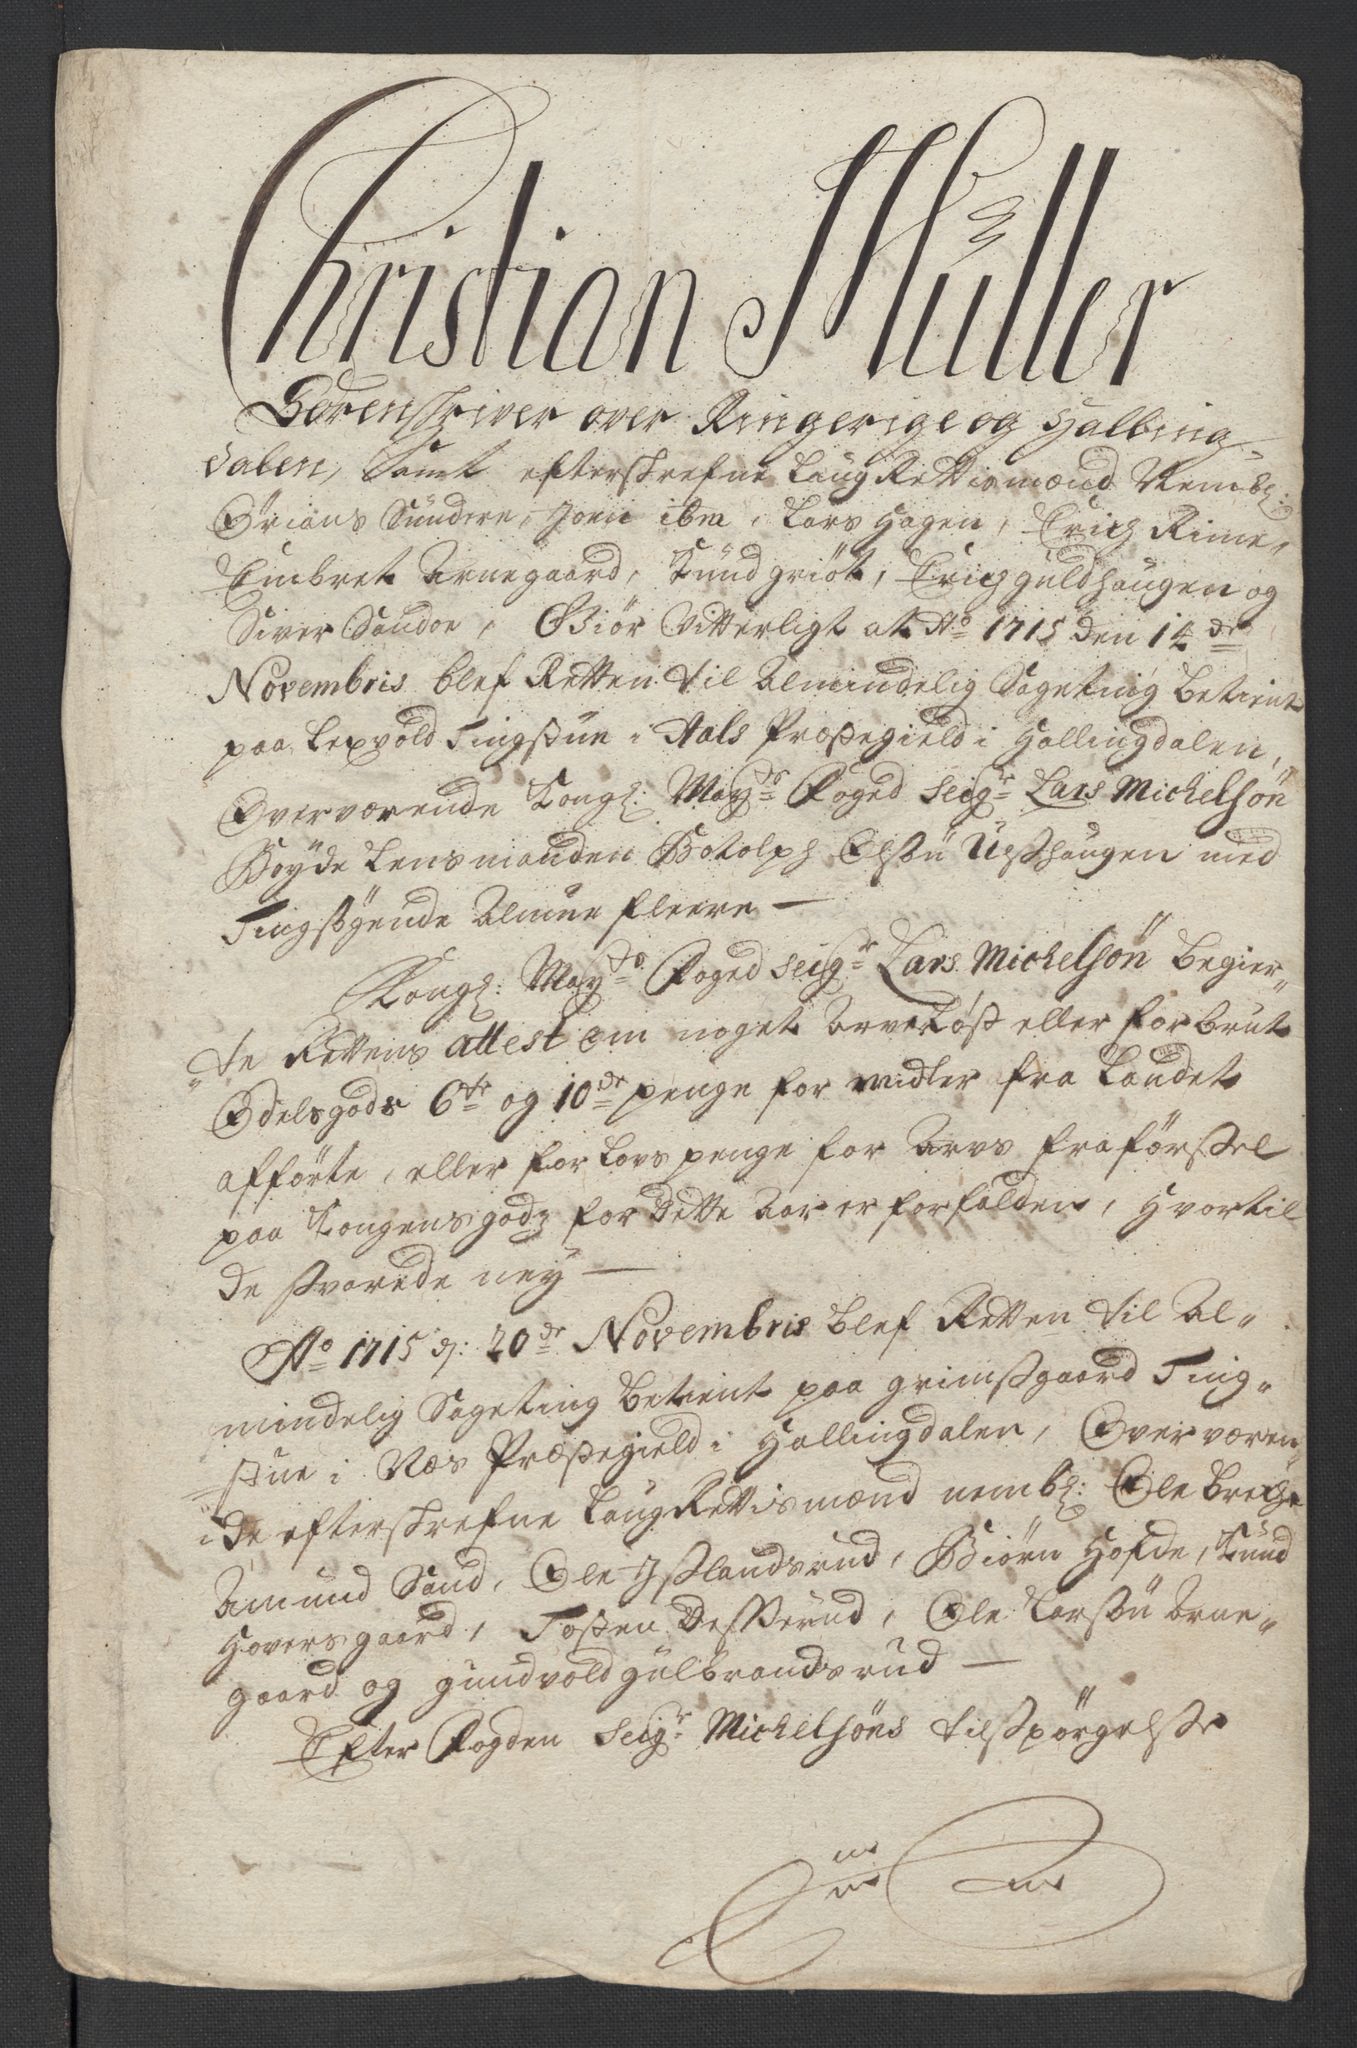 Christian Müller
Sorenskriver over Ringerige og Halling„
dalen, Samt efterskrefne Laug Rettismænd Nembl:
Örians Sundre, Joen ibm, Lars Hagen, Erich Rime,
Embret Arnegaard, Knud griöt, Erich guldhaugen og
Siver Sandoe, Giör Vitterligt at Ao 1715 den 14de
Novembris blef Retten til Almindelig Sageting betient
paa Lexvold Tingstue i Aals Præstegield i Hallingdalen,
Overværende Kongl: Mayts Foged Seigr Lars Michelsön
Böyde Lensmanden Botolph Olssön Ulshaugen med
Tingsögende Almue fleere —
Kongl: Mayts Foged Seigr Lars Michelsön begier„
„te Rettens attest om noget Arvelöst eller forbrut
Odelsgods 6te og 10de penge for midler fra Landet
afförte, eller forLovs penge for Arvs fraförssel
paa Kongens godz for dette Aar er forfalden, Hvortil
de svarede ney —
Ao 1715 d: 20de Novembris blef Retten til Al„
mindelig Sageting betient paa grimsgaard Ting„
stue i Næs Præstegield i Hallingdalen, Overværen„
„de efterskrefne Laug Rettismænd nembl: Ole
Amund Sand, Ole Islandsrud, Biörn Hofde, Knud
Hoversgaard, Tosten Desserud, Ole Larssön Arne„
gaard og gundvold gulbrandsrud —
Efter Fogden Seigr Michelsöns tilspörgelsse